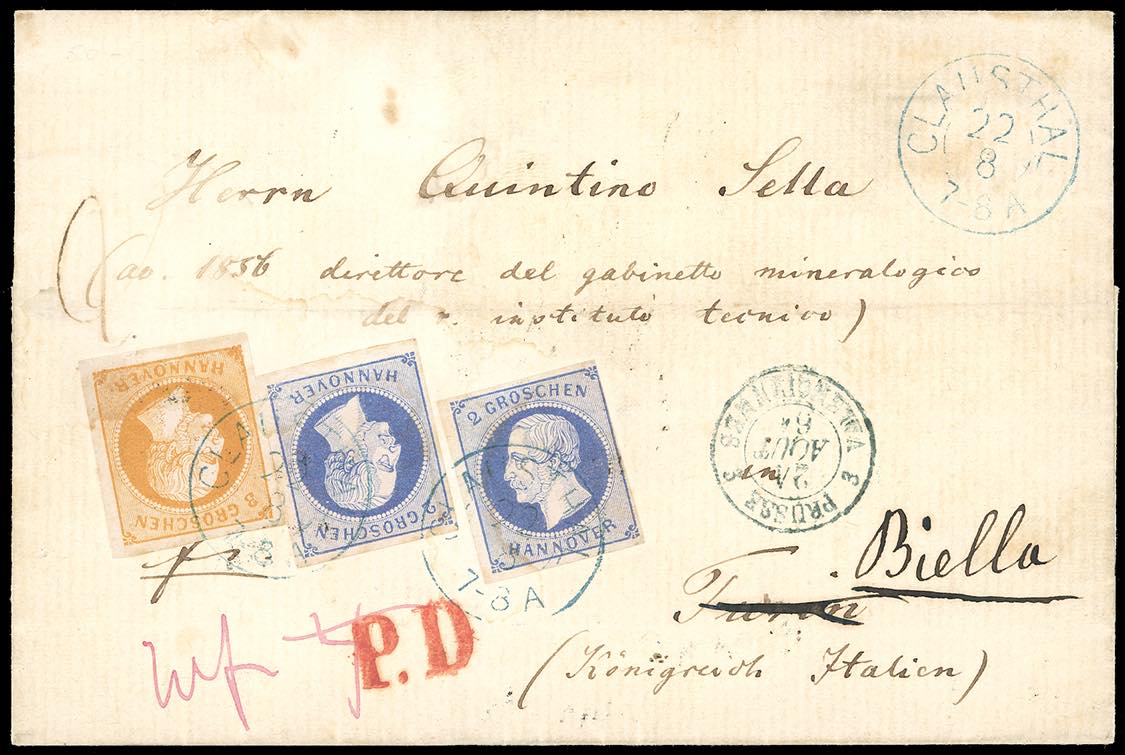 CLAUSTHAL
22
8
7-8 A
Herrn Quintino Sella
(ao. 1856 direttore del gabinetto mineralogico
del r. instituto tecnico)
HANNOVER
3 GROSCHEN
HANNOVER
2 GROSCHEN
2 GROSCHEN
HANNOVER
7-8 A
3 PRUSSE 3 VALENCIENNES
24
AOUT
64
in
Turin
Biella
(Königreich Italien)
P.D